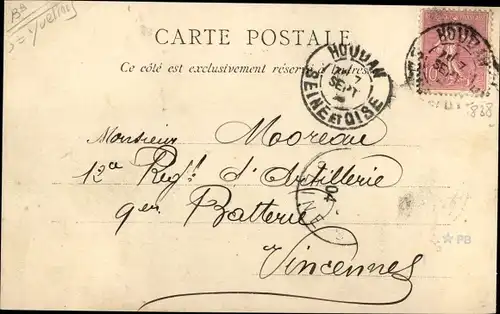 B
= Yvelines
CARTE POSTALE
Ce côté est exclusivement réservé à l'adresse
HOUDAN
7
SEPT
SEINE ET OISE
HOUDAN
10
838
Monsieur Mooreau
12e Regt. d'Artillerie
9er Batterie
Vincennes
04
PB